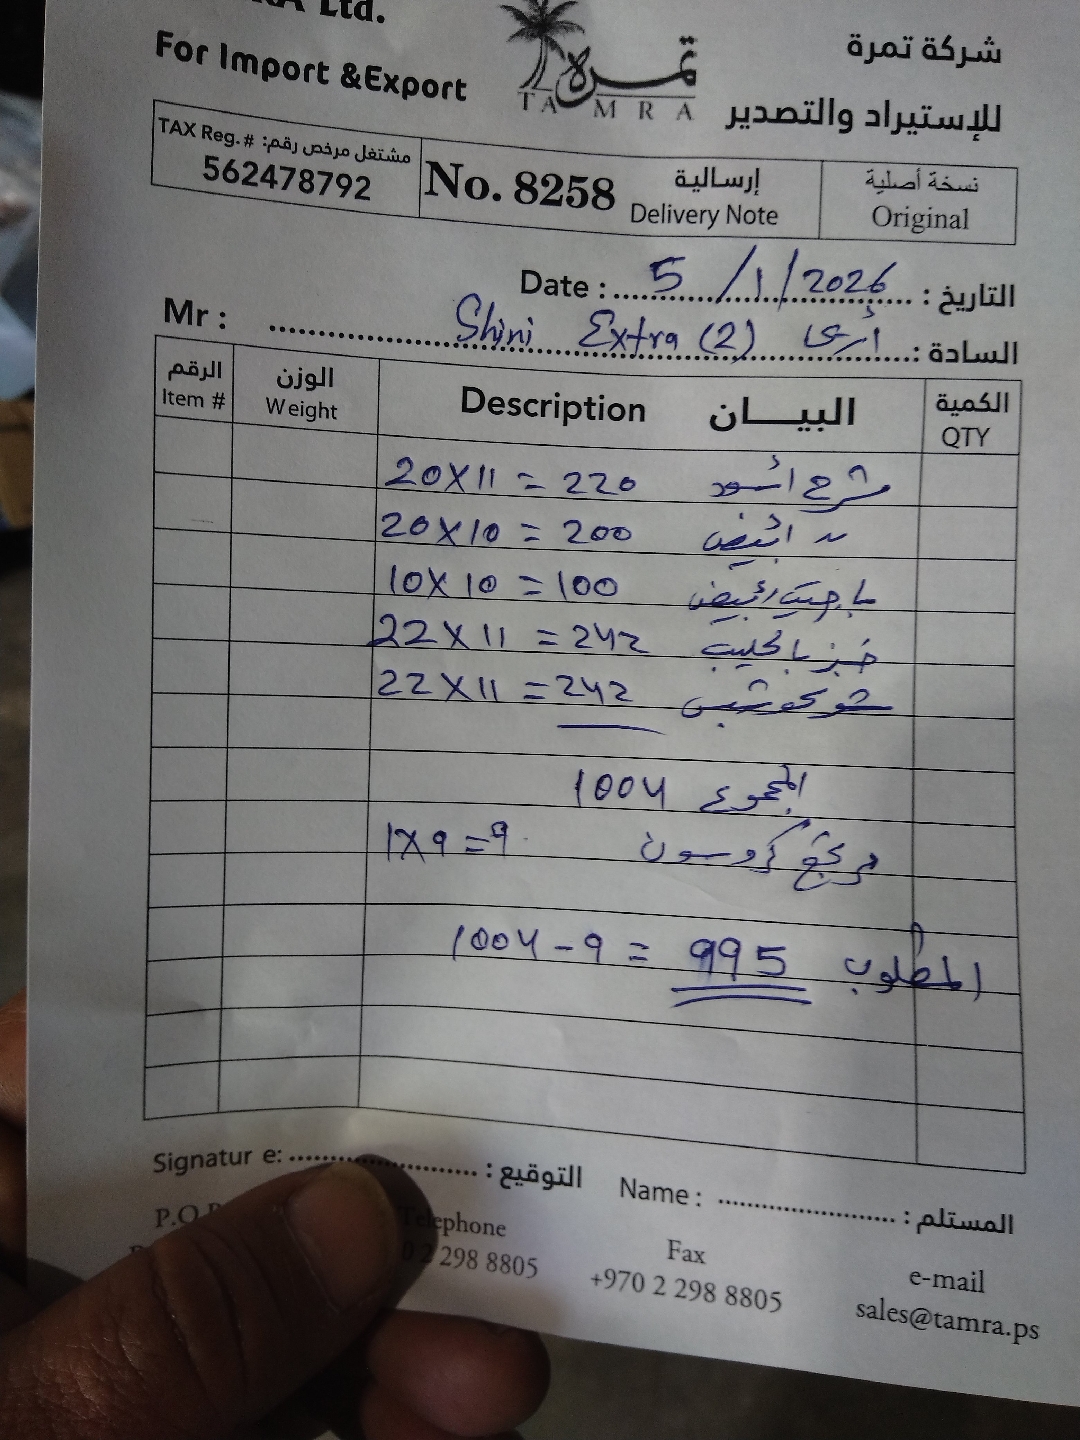 Ltd.
For Import &Export
تمرة
TAMRA
شركة تمرة
للإستيراد والتصدير
TAX Reg.# مشتغل مرخص رقم:
562478792
No. 8258
إرسالية
Delivery Note
نسخة أصلية
Original
Date : 5/1/2026 التاريخ :
Mr : Shini Extra (2) السادة :
الرقم
Item #
الوزن
Weight
Description البيـــان
الكمية
QTY
20X11 = 220 شرح أسود
20X10 = 200 أبيض
10X10 = 100 أبيض
22X11 = 242 خبز بالحليب
22X11 = 242
المجموع 1004
مرجع كروسون 1X9=9
المطلوب 1004-9 = 995
Signatur e: التوقيع :
Name : المستلم :
P.O.
Telephone
2 298 8805
Fax
+970 2 298 8805
e-mail
sales@tamra.ps